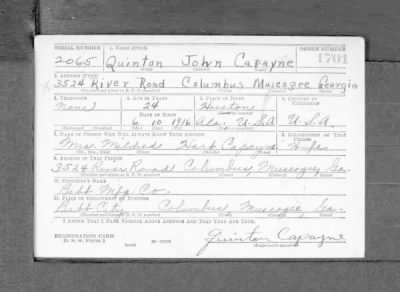 SERIAL NUMBER 1. NAME (Print) ORDER NUMBER
2065 Quinton John Capayne 1701
2. ADDRESS (Print)
3524 River Road Columbus Muscogee Georgia
3. TELEPHONE 4. AGE IN YEARS 5. PLACE OF BIRTH 6. COUNTRY OF CITIZENSHIP
None 24 Huston
DATE OF BIRTH
6 10 1916 Ala. U.S.A. U.S.A.
7. NAME OF PERSON WHO WILL ALWAYS KNOW YOUR ADDRESS 8. RELATIONSHIP OF THAT PERSON
Mrs. Mildred Hart Capayne Wife
9. ADDRESS OF THAT PERSON
3524 River Road Columbus Muscogee, Ga.
10. EMPLOYER'S NAME
Bibb Mfg. Co.
11. PLACE OF EMPLOYMENT OR BUSINESS
Bibb City Columbus Muscogee, Ga.
I AFFIRM THAT I HAVE VERIFIED ABOVE ANSWERS AND THAT THEY ARE TRUE.
REGISTRATION CARD
D. S. S. Form 1 Quinton Capayne